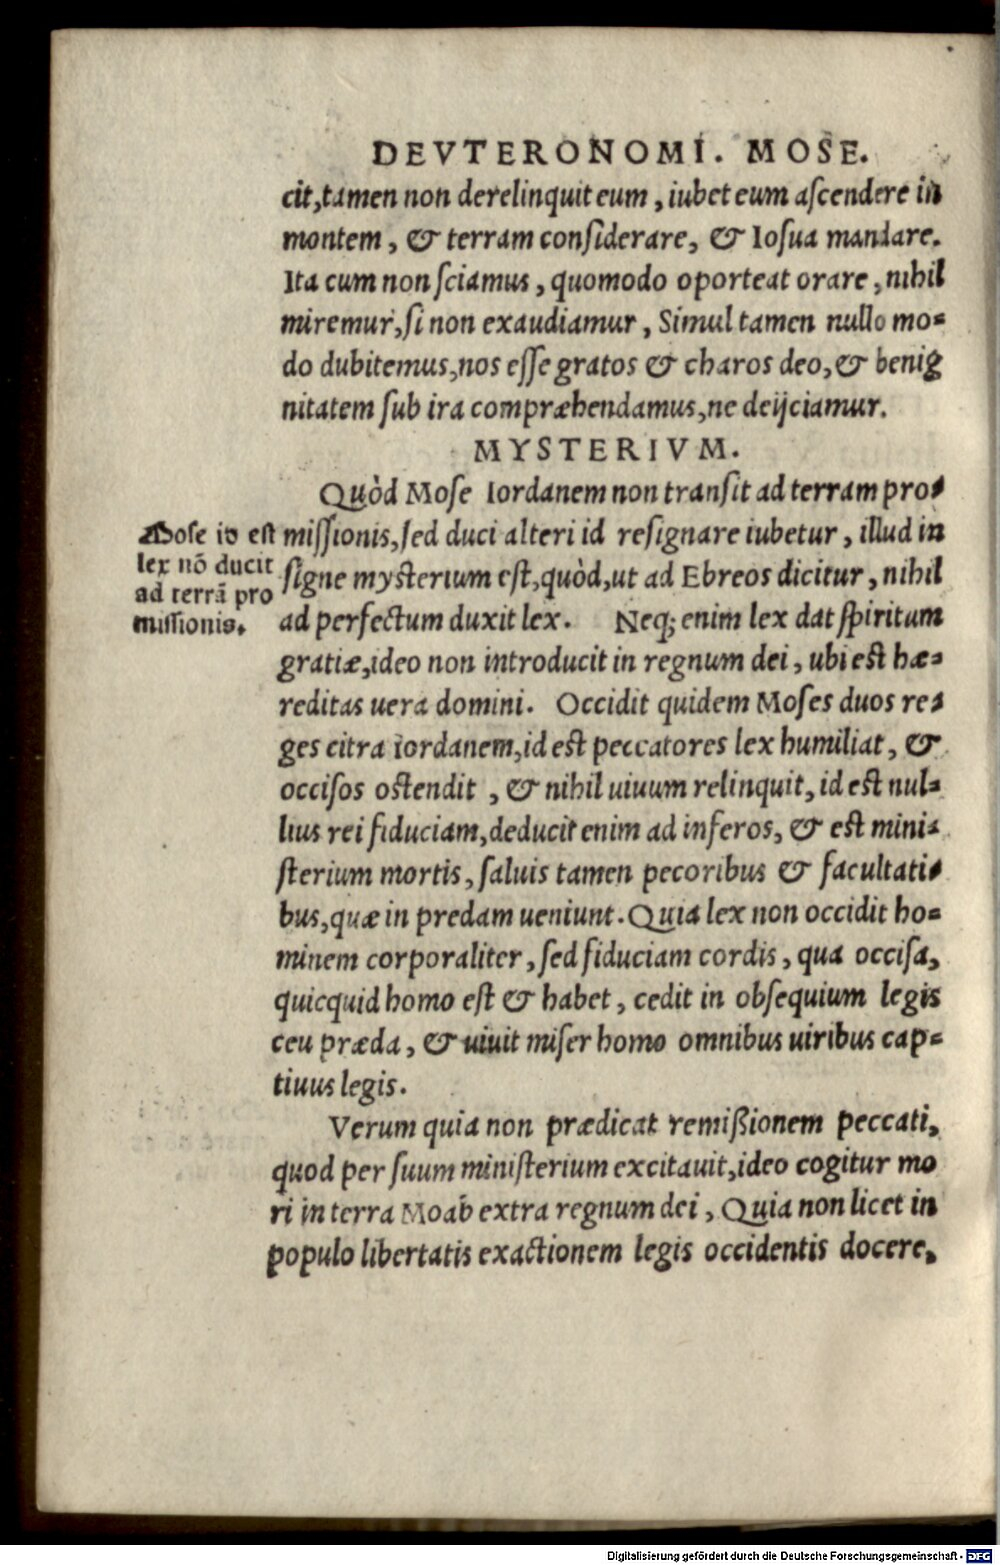 DEVTERONOMI. MOSE.
cit, tamen non derelinquit eum, iubet eum ascendere in
montem, & terram considerare, & Iosua mandare.
Ita cum non sciamus, quomodo oporteat orare, nihil
miremur, si non exaudiamur, Simul tamen nullo mo-
do dubitemus, nos esse gratos & charos deo, & benig
nitatem sub ira compræhendamus, ne deijciamur.
MYSTERIVM.
Quòd Mose Iordanem non transit ad terram pro-
missionis, sed duci alteri id resignare iubetur, illud in
signe mysterium est, quòd, ut ad Ebreos dicitur, nihil
ad perfectum duxit lex. Neq; enim lex dat spiritum
gratiæ, ideo non introducit in regnum dei, ubi est hæ-
reditas uera domini. Occidit quidem Moses duos re-
ges citra iordanem, id est peccatores lex humiliat, &
occisos ostendit, & nihil uiuum relinquit, id est nul-
lius rei fiduciam, deducit enim ad inferos, & est mini-
sterium mortis, saluis tamen pecoribus & facultati-
bus, quæ in predam ueniunt. Quia lex non occidit ho-
minem corporaliter, sed fiduciam cordis, qua occisa,
quicquid homo est & habet, cedit in obsequium legis
ceu præda, & uiuit miser homo omnibus uiribus cap-
tiuus legis.
Verum quia non prædicat remißionem peccati,
quod per suum ministerium excitauit, ideo cogitur mo
ri in terra Moab extra regnum dei, Quia non licet in
populo libertatis exactionem legis occidentis docere,
Mose id est
lex nõ ducit
ad terrã pro
missionis.
Digitalisierung gefördert durch die Deutsche Forschungsgemeinschaft - DFG